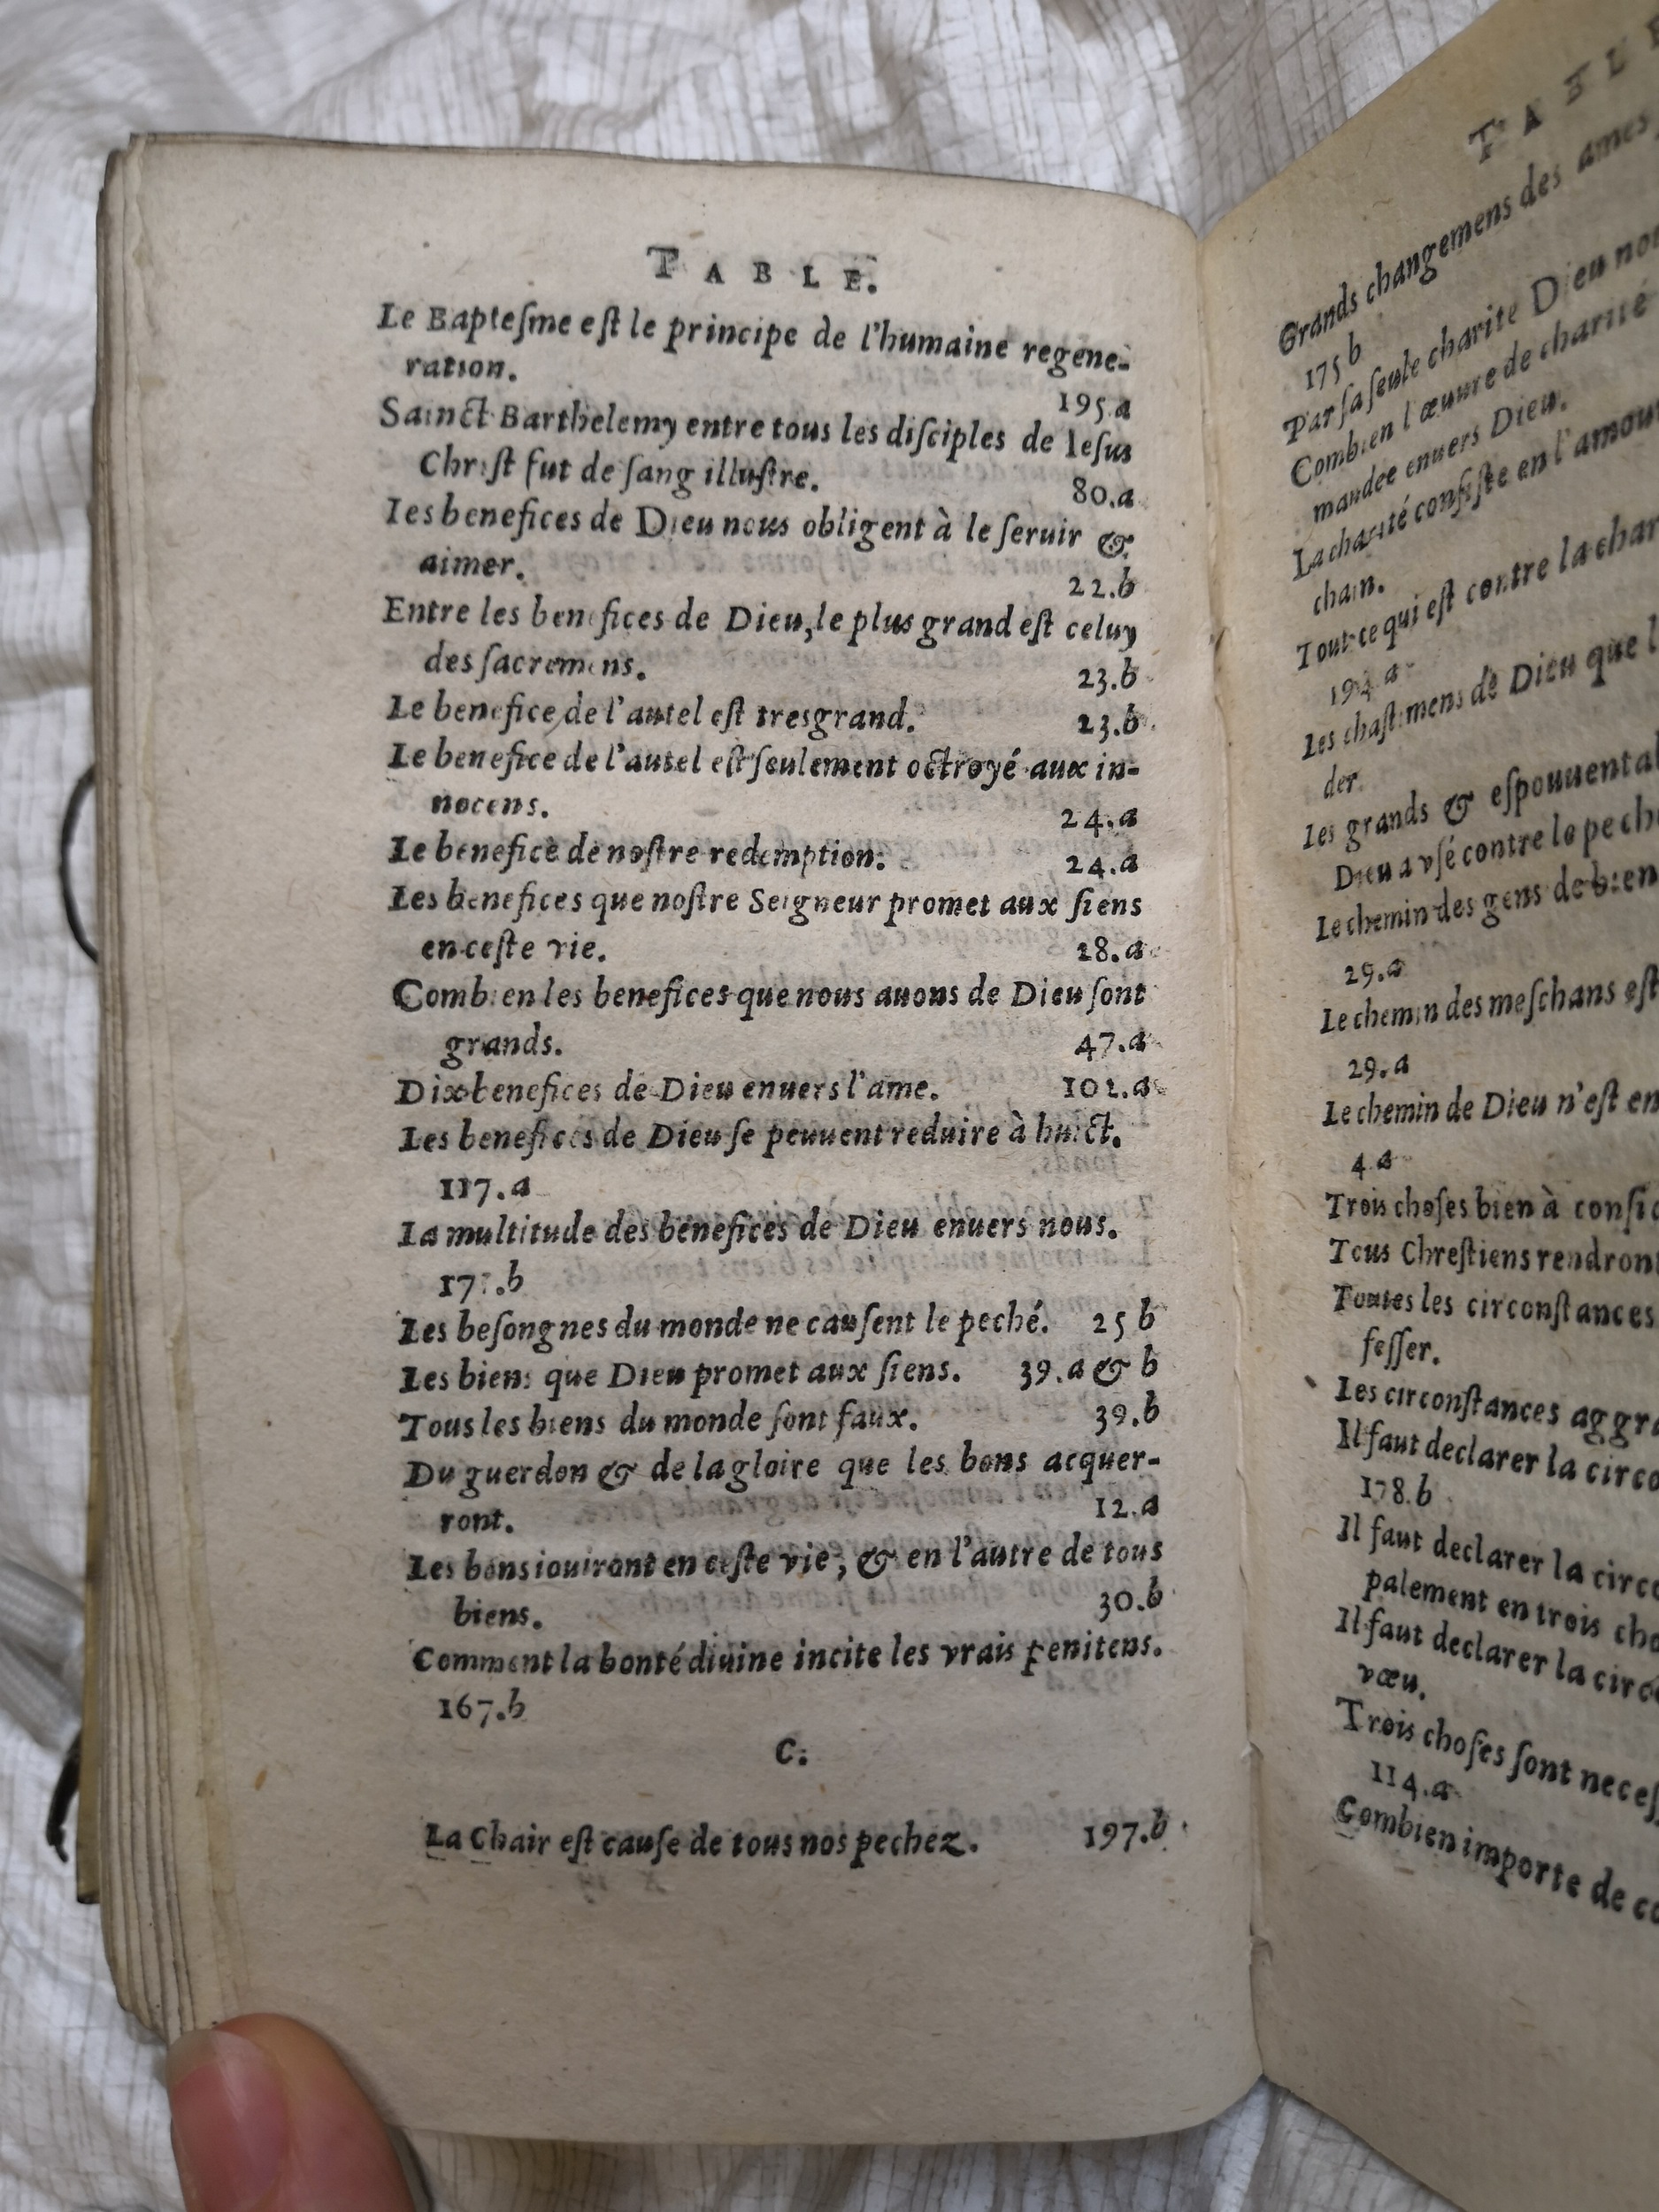 TABLE.
Le Baptesme est le principe de l'humaine regene-
ration. 195.a
Sainct Barthelemy entre tous les disciples de Iesus
Christ fut de sang illustre. 80.a
Les benefices de Dieu nous obligent à le seruir &
aimer. 22.b
Entre les benefices de Dieu, le plus grand est celuy
des sacremens. 23.b
Le benefice de l'autel est tresgrand. 23.b
Le benefice de l'autel est seulement octroyé aux in-
nocens. 24.a
Le benefice de nostre redemption. 24.a
Les benefices que nostre Seigneur promet aux siens
en ceste vie. 28.a
Combien les benefices que nous auons de Dieu sont
grands. 47.a
Dix benefices de Dieu enuers l'ame. 102.a
Les benefices de Dieu se peuuent reduire à huict.
117.a
La multitude des benefices de Dieu enuers nous.
Les besongnes du monde ne causent le peché. 25 b
Les biens que Dieu promet aux siens. 39.a & b
Tous les biens du monde sont faux. 39.b
Du guerdon & de la gloire que les bons acquer-
ront. 12.a
Les bons iouiront en ceste vie, & en l'autre de tous
biens. 30.b
Comment la bonté diuine incite les vrais penitens.
167.b
C.
La Chair est cause de tous nos pechez. 197.b
TABLE
Grands changemens des ames
175 b
Par sa seule charité Dieu
Combien l'œuure de charité
mandee enuers Dieu.
La charité consiste en l'amour
chain.
Tout ce qui est contre la
194.a
Les chastimens de Dieu que
der.
Les grands &
Dieu a vsé contre le
Le chemin des gens de bien
29.a
Le chemin des meschans est
29.a
Le chemin de Dieu n'est
4 a
Trois choses bien à
Tous Chrestiens
Toutes les circonstances
fesser.
Les circonstances
Il faut declarer la
178.b
Il faut declarer la
palement en trois
Il faut declarer la
vœu.
Trois choses sont
114.a
Combien importe de